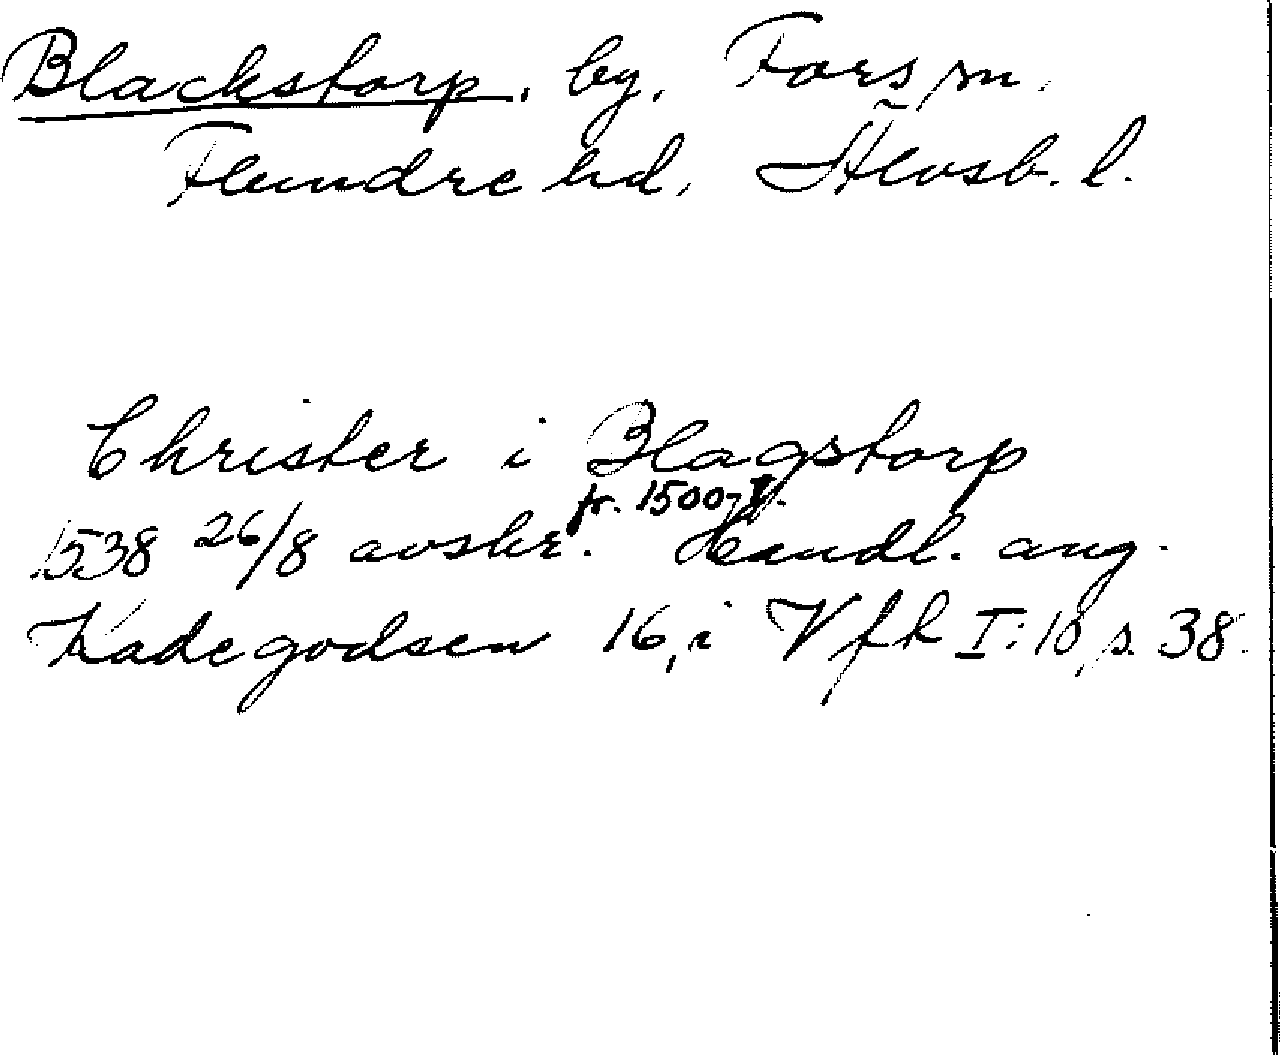 Blackstorp, by, Fors sn.
Flundre hd, Älvsb. l.
Christer i Blagstorp
fr. 1500-T.
1538 26/8 avskr. Handl. ang.
Kadegodsen 16, i Vfk I: 10, s. 38.